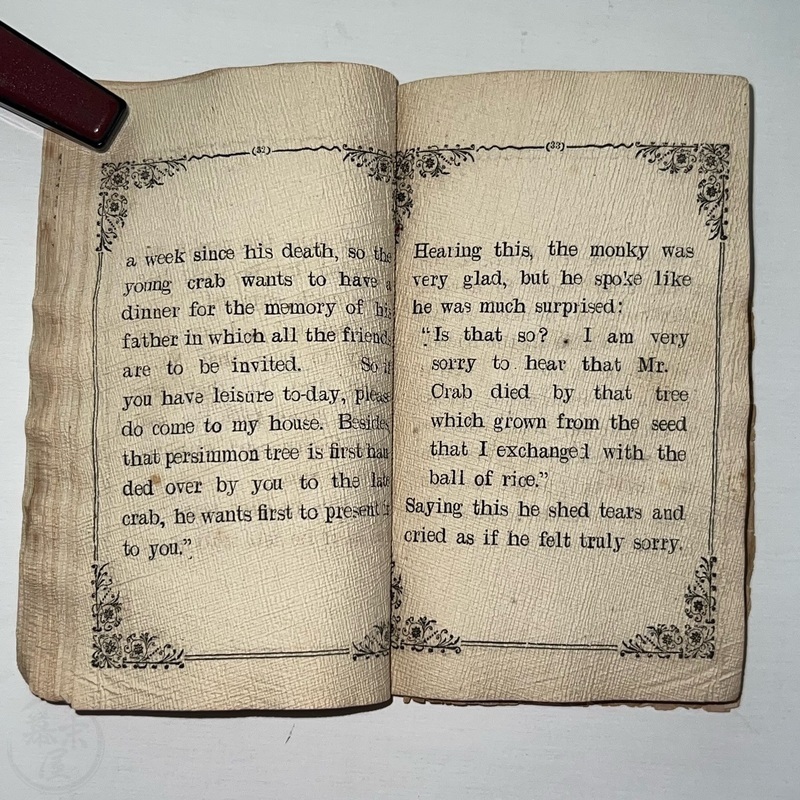 (32)
a week since his death, so the
young crab wants to have a
dinner for the memory of his
father in which all the friend
are to be invited. So if
you have leisure to-day, please
do come to my house. Besides
that persimmon tree is first han
ded over by you to the late
crab, he wants first to present it
to you.”
(33)
Hearing this, the monky was
very glad, but he spoke like
he was much surprised:
“Is that so? I am very
sorry to hear that Mr.
Crab died by that tree
which grown from the seed
that I exchanged with the
ball of rice.”
Saying this he shed tears and
cried as if he felt truly sorry.